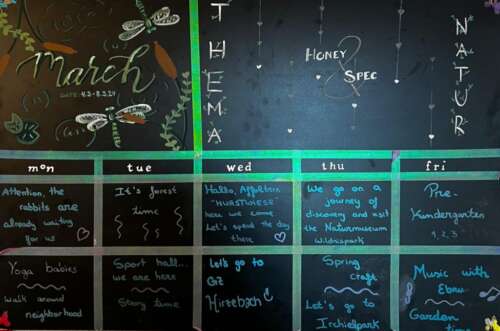 March
DATE: 4.3 - 8.3.24
THEMA
HONEY
& SPEC
NATUR
mon
tue
wed
thu
fri
Attention, the
rabbits are
already waiting
for us
It's forest
time
Hallo, Appletree
"HURSTWIESE"
here we come
Let's spend the day
there
We go on a
journey of
discovery and visit
the Naturmuseum
Wildnispark
Pre-
Kindergarten
1, 2, 3
Yoga babies
Walk around
neighborhood
Sport hall...
we are here
Story time
Let's go to
GZ
Hirzebach
Spring
craft
Let's go to
Irchelpark
Music with
Ebru
Garden
time